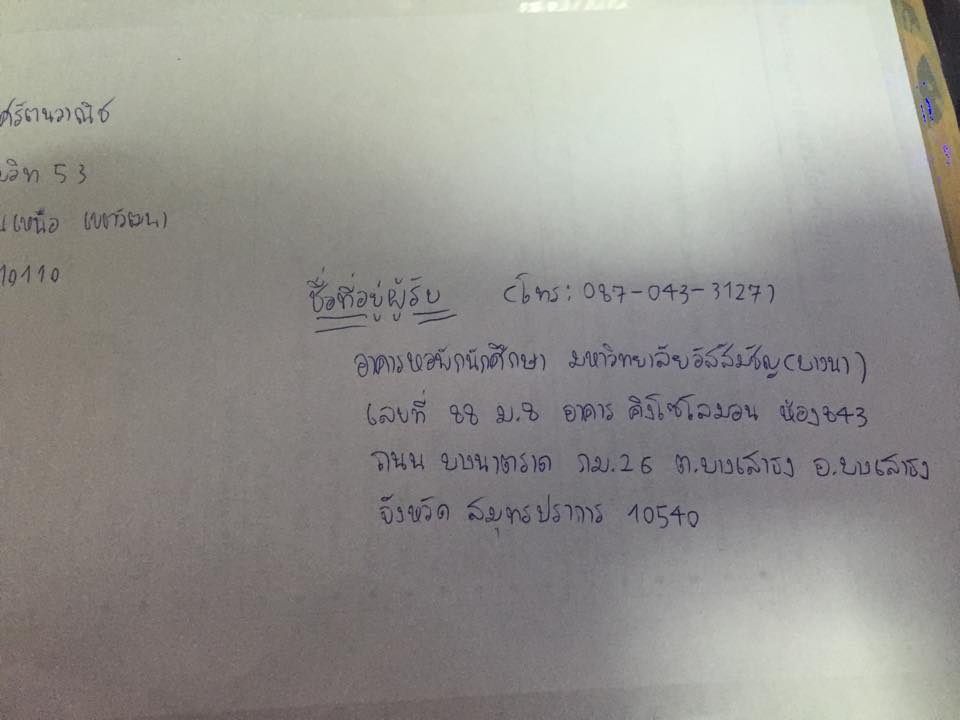 ศรีตนวาณิช
53
นเหนือ เขตวัฒนา
10110
ชื่อที่อยู่ผู้รับ (โทร: 087-043-3127)
อาคารหอพักนักศึกษา มหาวิทยาลัยอัสสัมชัญ(บางนา)
เลขที่ 88 ม.8 อาคาร คิงโซโลมอน ห้อง843
ถนน บางนาตราด กม.26 ต.บางเสาธง อ.บางเสาธง
จังหวัด สมุทรปราการ 10540